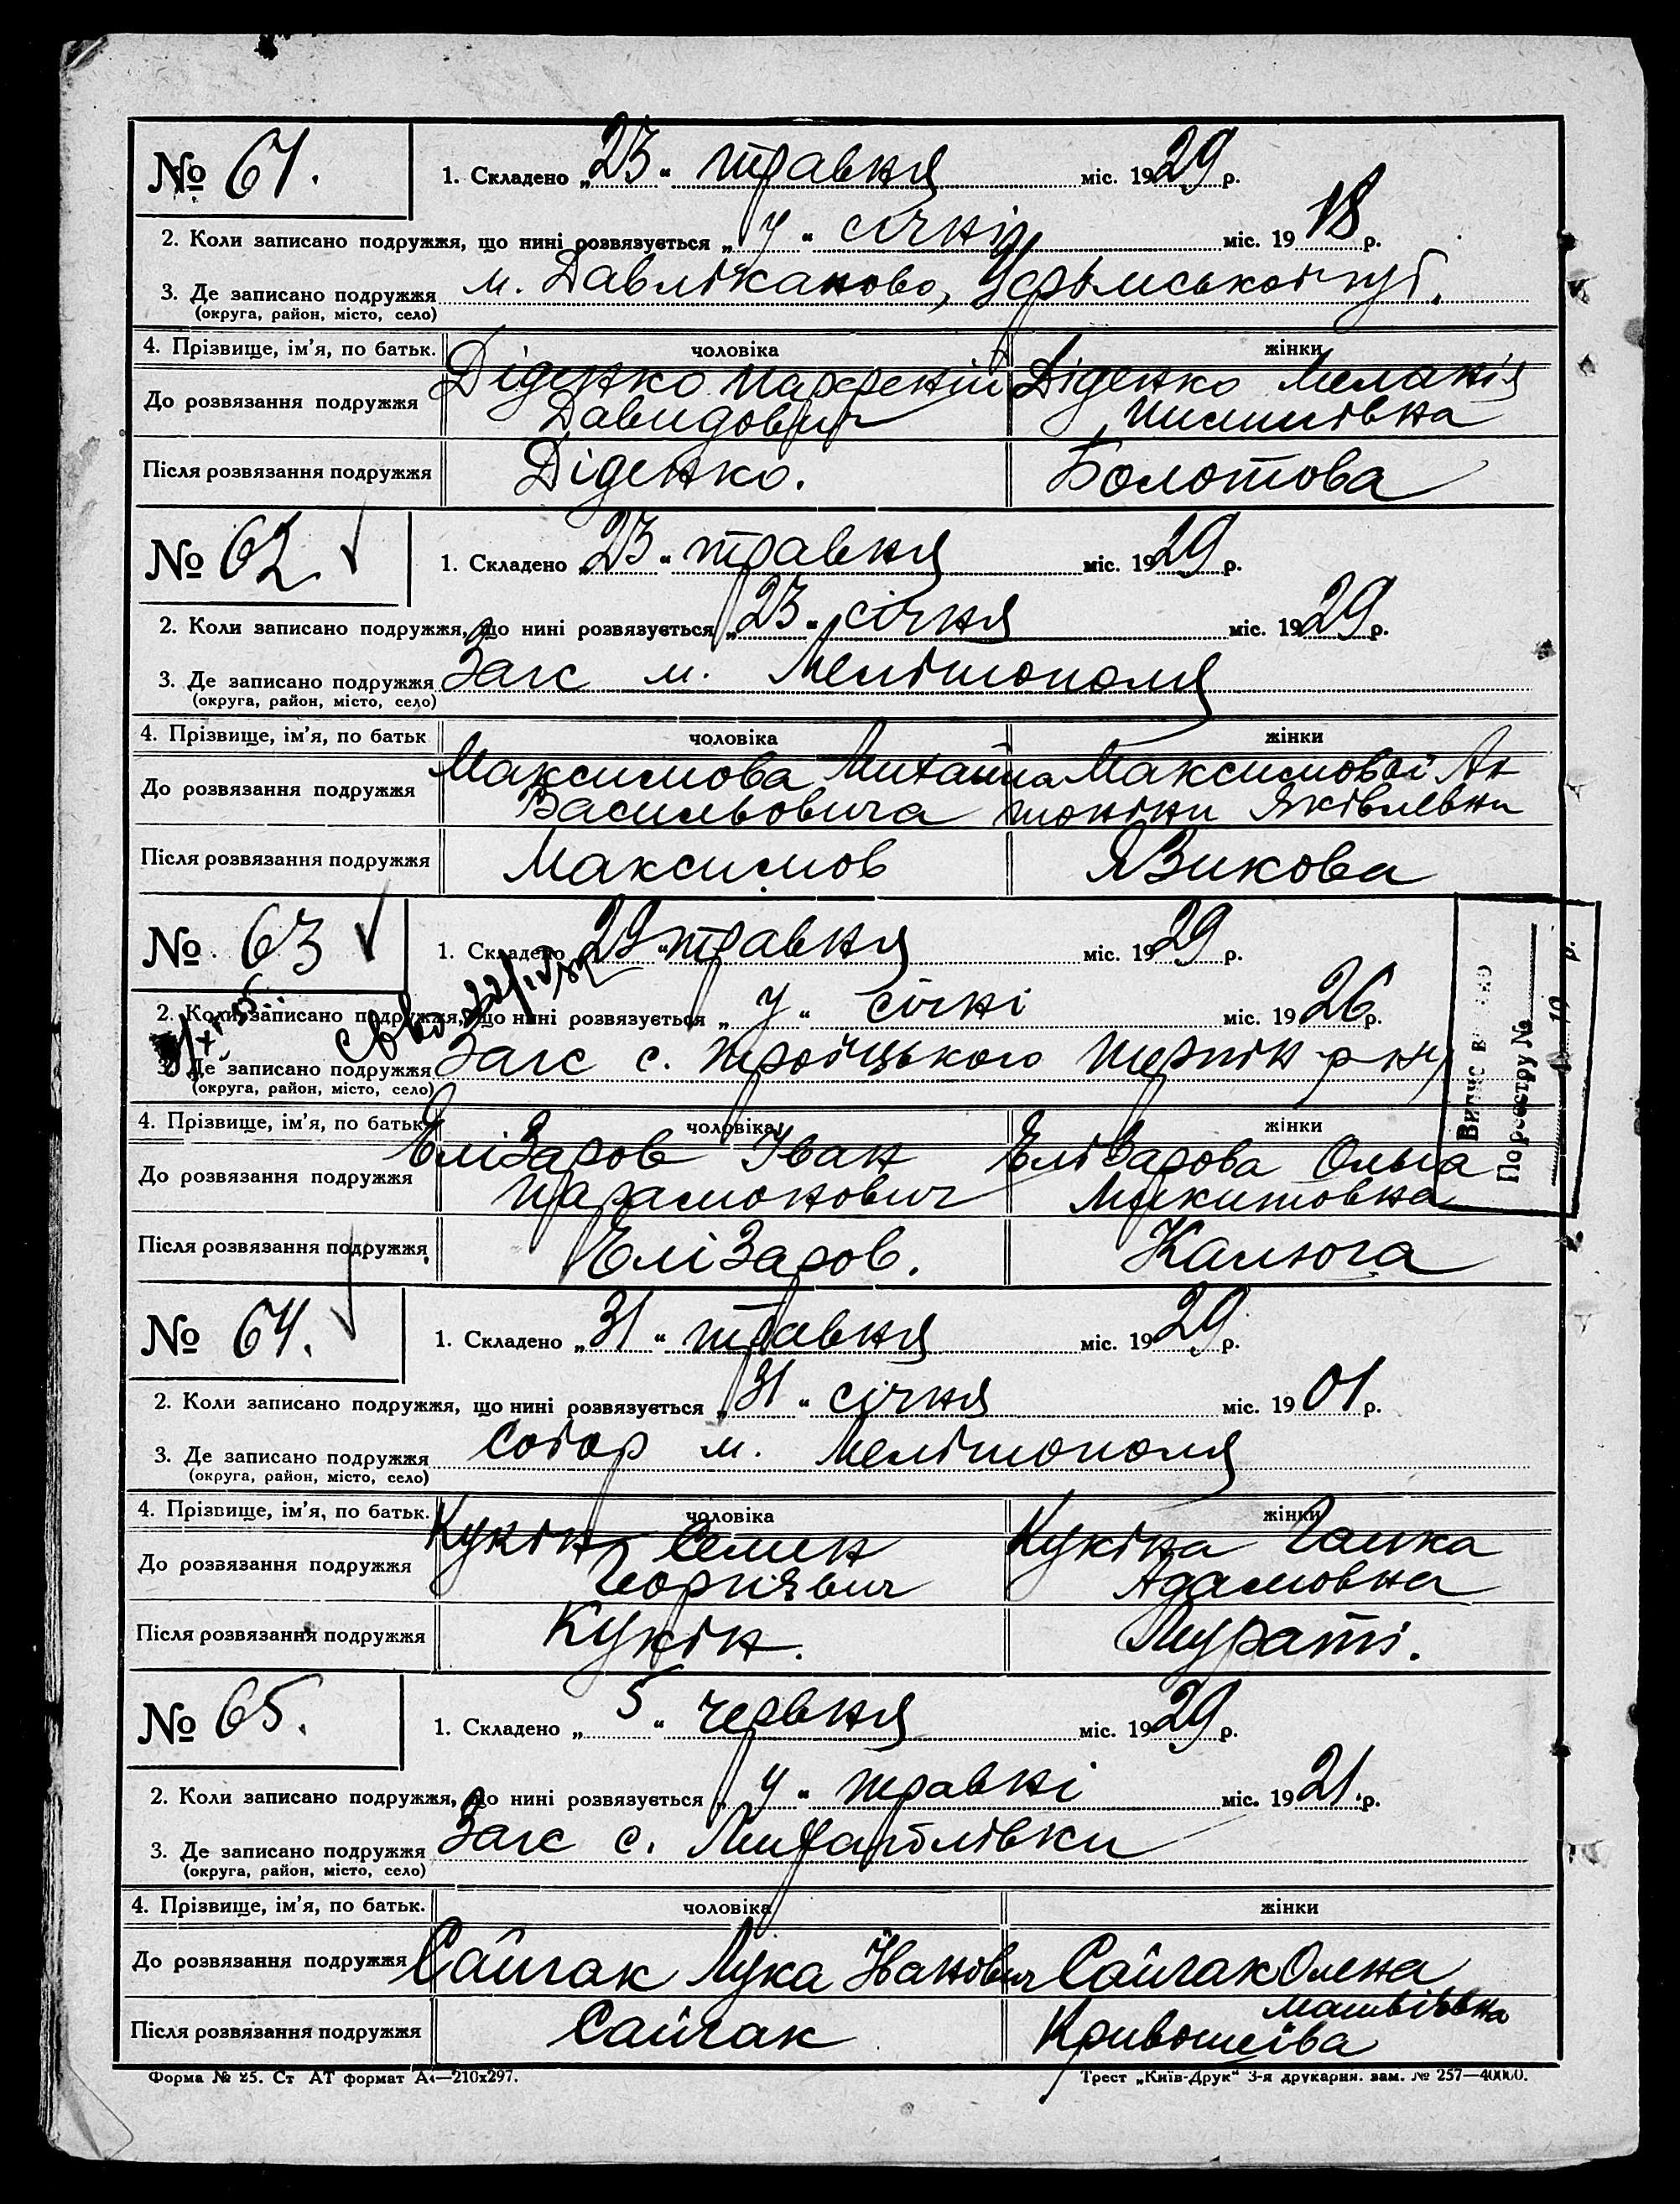 № 61.
1. Складено „23“ травня міс. 1929 р.
2. Коли записано подружжя, що нині розвязується „у“ січні міс. 1918 р.
3. Де записано подружжя м. Давліканово, Уфімської губ.
(округа, район, місто, село)
4. Прізвище, ім'я, по батьк. чоловіка жінки
До розвязання подружжя Діденко Парфеній Діденко Меланія
Давидович Пилипівна
Після розвязання подружжя Діденко. Болотова
№ 62
1. Складено „23“ травня міс. 1929 р.
2. Коли записано подружжя, що нині розвязується „23“ січня міс. 1929 р.
3. Де записано подружжя Загс м. Мелітополя
(округа, район, місто, село)
4. Прізвище, ім'я, по батьк чоловіка жінки
До розвязання подружжя Максимова Михайла Максимової Ан
Васильовича тоніни Яківлевни
Після розвязання подружжя Максимов Язикова
№ 63
1. Складено „23“ травня міс. 1929 р.
2. Коли записано подружжя, що нині розвязується „у“ січні міс. 1926 р.
3. Де записано подружжя Загс с. Троїцького Терпін р-ну
(округа, район, місто, село)
4. Прізвище, ім'я, по батьк. чоловіка жінки
До розвязання подружжя Елізаров Іван Елізарова Ольга
Парамонович Микитовна
Після розвязання подружжя Елізаров. Калюга
Випис
По реєстру №
19 р.
№ 64.
1. Складено „31“ травня міс. 1929 р.
2. Коли записано подружжя, що нині розвязується „31“ січня міс. 1901 р.
3. Де записано подружжя Собор м. Мелітополя
(округа, район, місто, село)
4. Прізвище, ім'я, по батьк. чоловіка жінки
До розвязання подружжя Кукін Семен Кукіна Ганка
Георгиевич Адамовна
Після розвязання подружжя Кукін. Мураті.
№ 65.
1. Складено „5“ червня міс. 1929 р.
2. Коли записано подружжя, що нині розвязується „у“ травні міс. 1921 р.
3. Де записано подружжя Загс с. Михайлівки
(округа, район, місто, село)
4. Прізвище, ім'я, по батьк. чоловіка жінки
До розвязання подружжя Сайгак Лука Іванович Сайгак Олена
Матвіївна
Після розвязання подружжя Сайгак Кривошеїва
Форма № 25. Ст АТ формат А4—210х297.
Трест „Київ-Друк“ 3-я друкарня. зам. № 257—40000.